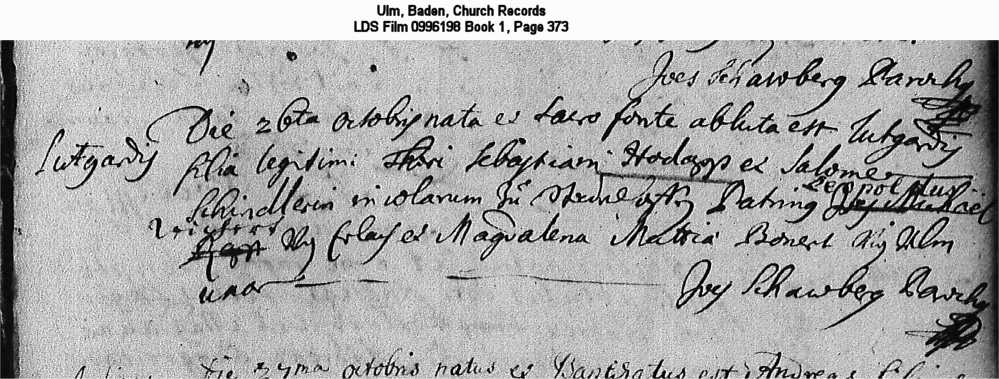 Ulm, Baden, Church Records
LDS Film 0996198 Book 1, Page 373
Joes Schawberg Parochy
Die 26ta octobris nata et sacro fonte abluta est Lutgardis
Lutgardis
filia legitimi Sebastiani Hodapp et Salome
Schindlerin incolarum Zu Patrinq Leopoldus
Erlach et Magdalena Mattia Bonert Ulm
uxor
Joes Schawberg Parochy
Die 27ma octobris natus et Baptizatus est Andreas